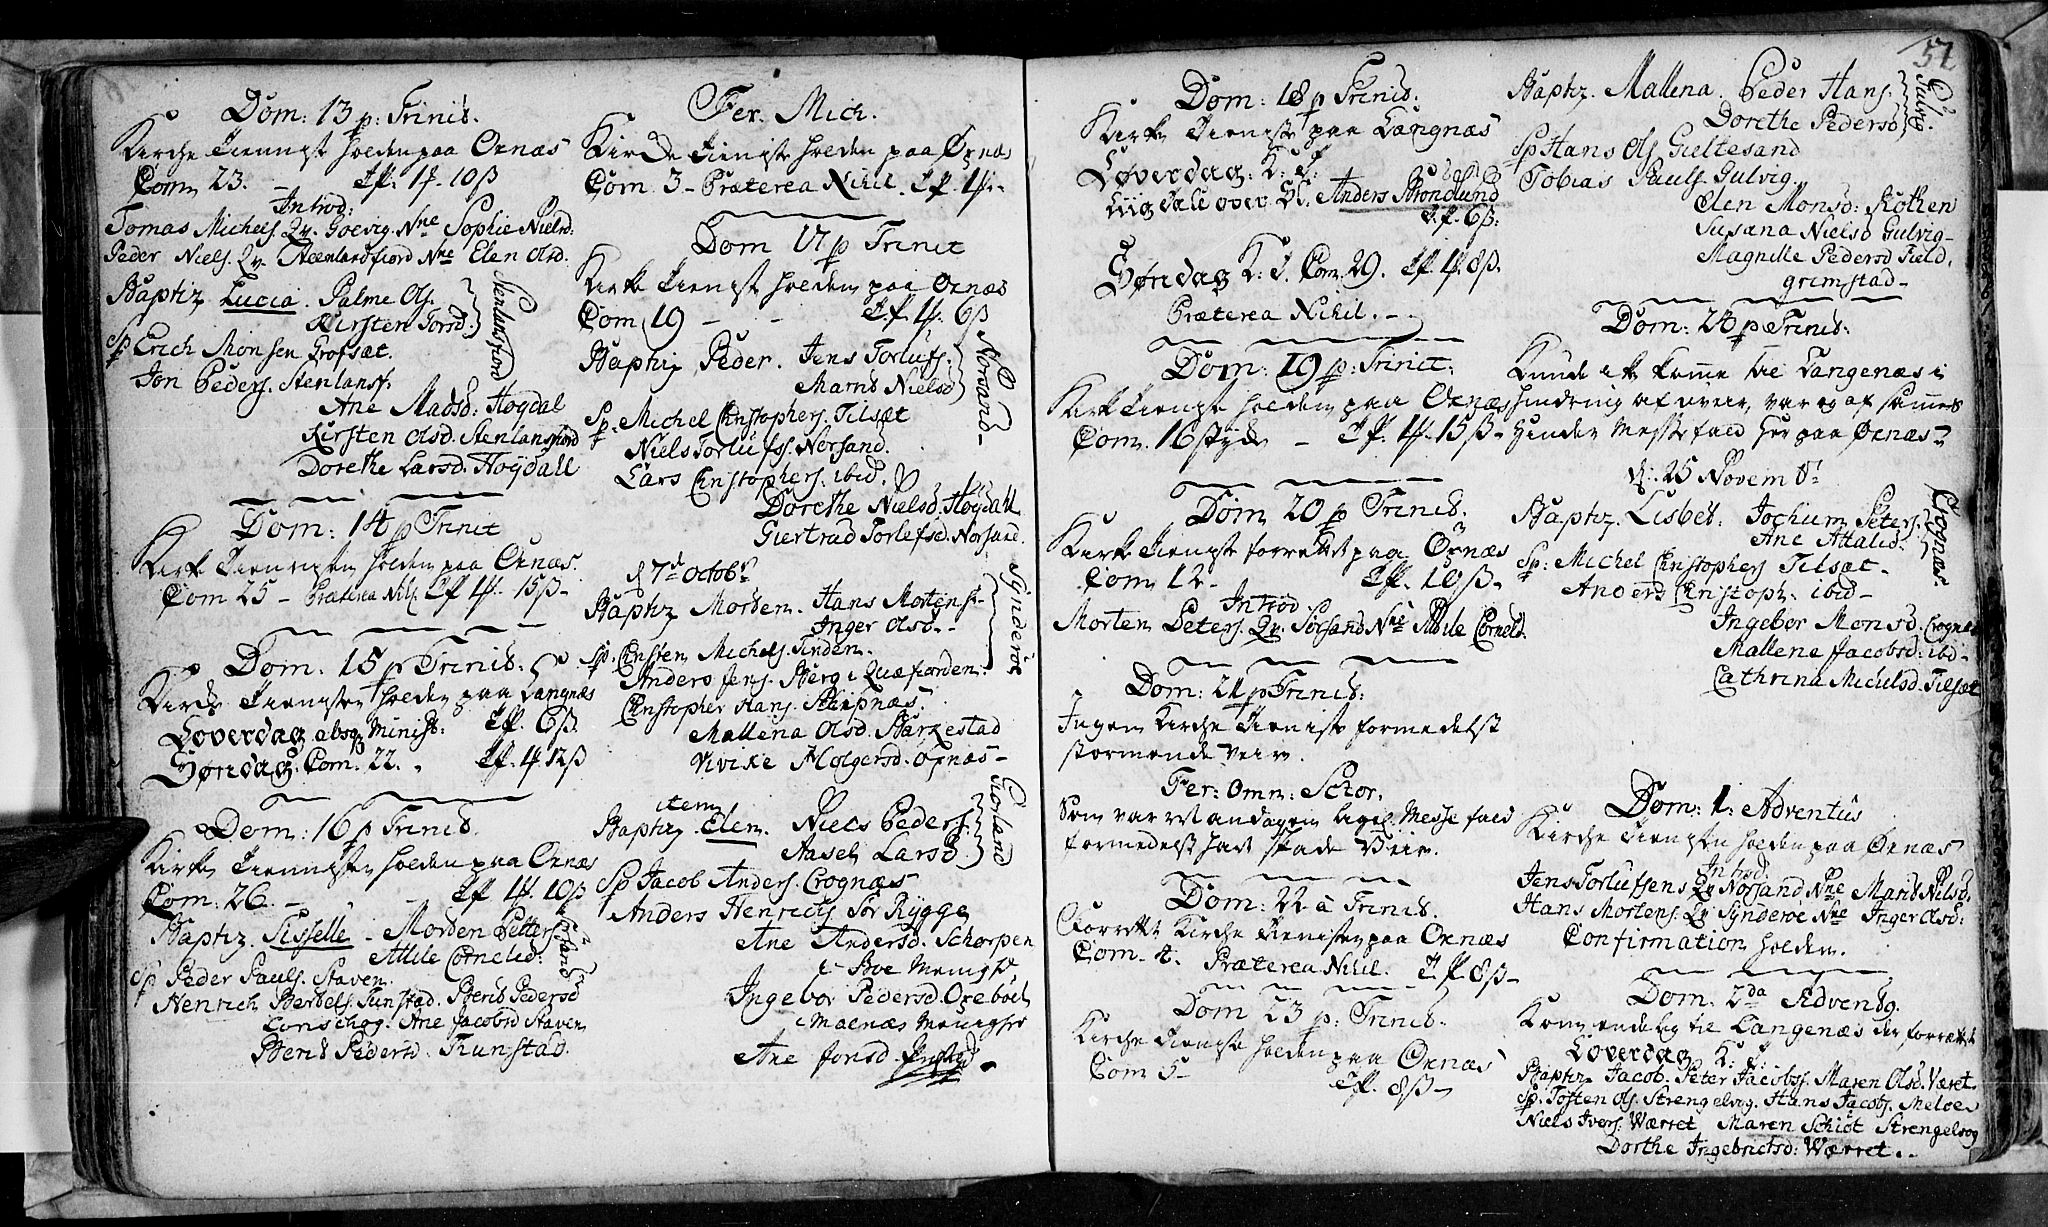 Dom: 13 p: Trinit.
Kirche Tienngst holden paa Ornæs
Com 23. – Tfl. 1 – 10 ß
Introd:
Tomas Michels. Qv. Goevig. Nne Sophie Nielsd:
Peder Niels. Qv. Steenlandsfiord Nne Elen Olsd.
Baptiz Lucia. Palme Ols.
Kirsten Torsd.
Stenlansfiord
Sp Erich Monsen Grofsæt.
Jon Peders. Stenlansf.
Ane Madsd: Høgdal
Kirsten Olsd. Stenlansfiord
Dorethe Larsd. Høydall
Dom: 14 p Trinit
Kirk Tiennisten holden paa Ornæs.
Com 25 – Præterea Nihil 15 ß –
Dom: 15 p Trinit:
Kirche Tienesten holden paa Langnæs
Loverdag absq Minist: 6 ß
Søndag. Com. 22. 12 ß
Dom: 16 p Trinit.
Kirke Tiennisten holden paa Ornæs
Com: 26. – 10 ß
Baptiz. Sisselle – Morden Petters
Attile Cornelid:
Sørsand
Sp Peder Pauls. Staven.
Henrich Bertels. Tunstad. Berit Pedersd
Ane Jacobsd Staven
Berit Pedersd. Tunstad.
Fer. Mich.
Kirche Tieniste holden paa Ørnæs
Com 3 – Præterea Nihil.
Dom 17 p Trinit
Kirke Tiengst holden paa Ornæs
Com 19 – – 6 ß
Baptiz Peder. Jens Torlufs.
Marit Nielsd
Norsand –
Sp. Michel Christophers. Tilsæt
Niels Torlufs. Norsand.
Lars Christophers. ibid.
Dorethe Nielsd. Høydall
Giertrud Torlefsd. Norsand.
d 7de Octobr
Baptiz Morden. Hans Mortens.
Inger Olsd –
Synderøe
Sp. Christen Michels. Tinden.
Anders Jens. Berg i Quæfiorden.
Christopher Hans. Skipnæs.
Mallena Olsd. Barkestad
Vivike Holgersd. Ørnæs –
item
Baptiz. Elen. Niels Peders.
Aaseh Larsd.
Sp Jacob Anders. Crognæs
Anders Henrichs. Sør Rygge
Ane Andersd. Schorpen
i Bøe Menighd,
Ingebor Pedersd. Oxebøel
i Malnæs Menighed
Ane Jonsd.
51
Dom: 18 p Trinit:
Kirke Tieniste paa Langnæs
Løverdag: K: T:
Liigtale over Sl. Anders Brondlund
6 ß:
Søndag K. T. Com. 29. 8 ß.
Præterea Nihil. –
Dom: 19 p: Trinit:
Kirk Tieniste holden paa Ornæs
Com. 16 stÿche – 15 ß –
Dom 20 p Trinit.
Kirke Tieniste forrettet paa Ørnæs
Com 12 – 10 ß –
Introd.
Morten Peters. Qv. Sørsand Nne Attile Cornelid.
Dom: 21 p Trinit:
Ingen Kirche Tieniste formedelst
stormende Veir.
Fer: Omn: Sctor.
Som var et andagen ligel. Messe fald
formedelst hart stade Veir.
Dom: 22 a Trinit.
Forrett Kirche Tienisten paa Ornæs
Com. 4. Præterea Nihil. 8 ß –
Dom 23 p: Trinit.
Kirche Tieniste holden paa Ornæs
Com 5 – 8 ß –
Baptiz. Mallena. Peder Hans.
Dorethe Pedersd
Gulvig.
Sp Hans Ols Gieltesand
Tobias Pauls. Gulvig.
Elen Monsd: Rothen
Susana Nielsd Gulvig –
Magnille Pedersd Field,
grimstad –
Dom: 24 p Trinit:
Kunde ik komme til Langenæs i
hindring af uveir, var og af samme
hinder Messefald her paa Ørnæs –
d. 25 Novembr
Baptiz. Lisbet. Jochum Peters.
Ane Attalid.
Crognæs
Sp: Michel Christophers Tilsæt –
Anders Christoph. ibid –
Ingebor Monsd. Crognæs
Mallene Jacobsd: ibd –
Cathrina Michelsd. Tilsæt
Dom: 1: Adventus
Kirche Tienesten holden paa Ørnæs
Introd.
Jens Torlufsens Qv Norsand Nne Marit Nilsd.
Hans Mortens. Qv Synderøe Nne Inger Olsd:
Confirmation holden.
Dom. 2da Advents.
Kom endelig til Langenæs der forrættet
Loverdag K: T:
Baptiz Jacob. Peter Jacobss. Maren Olsd. Været
Sp. Tosten Ols. Strengelvig. Hans Jacobs. Meløe
Niels Ivers. Wærret Maren Schiøt Strengelvog
Dorthe Ingebrichtsd: Wærret..